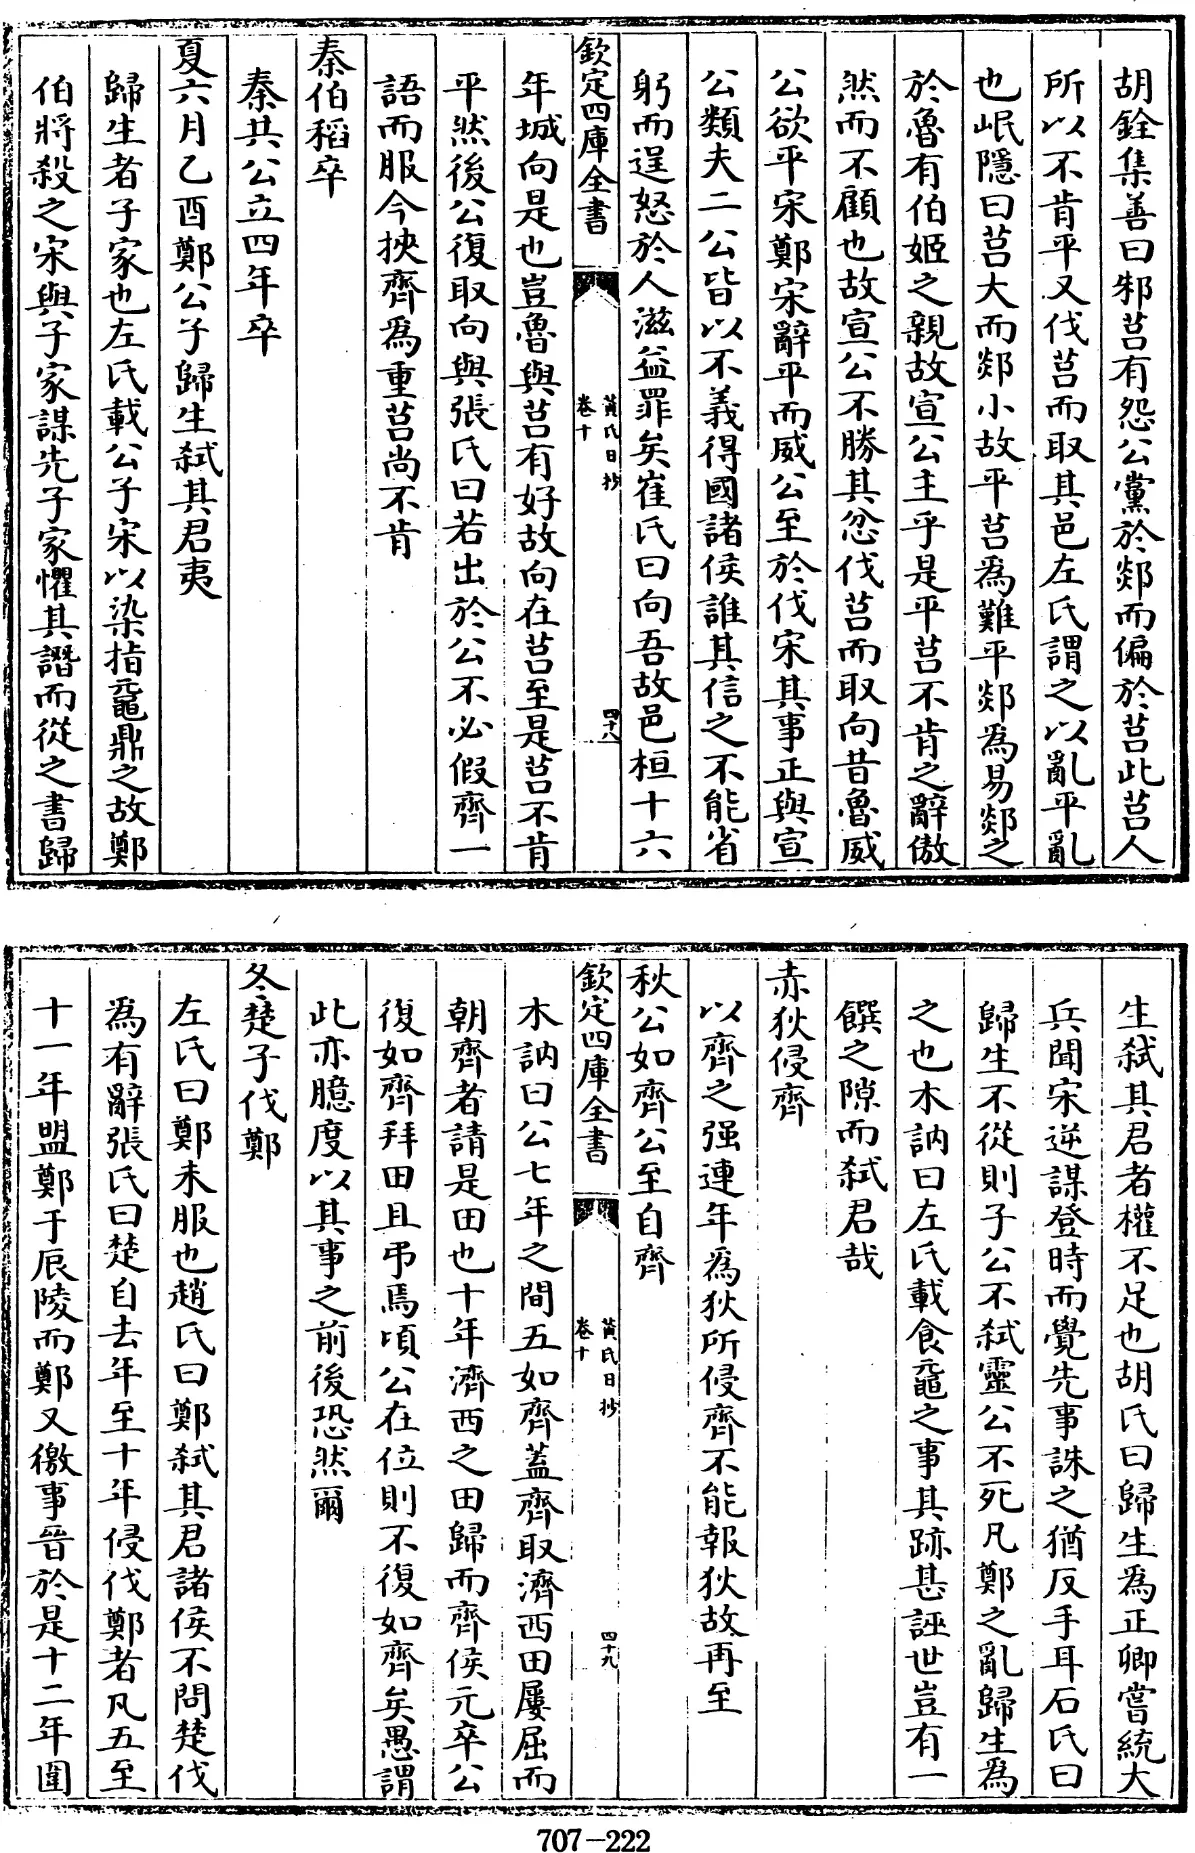 胡銓集善曰邾莒有怨公黨於郯而偏於莒此莒人
所以不肯平又伐莒而取其邑左氏謂之以亂平亂
也岷隱曰莒大而郯小故平莒爲難平郯爲易郯之
於魯有伯姬之親故宣公主乎是平莒不肯之辭傲
然而不顧也故宣公不勝其忿伐莒而取向昔魯威
公欲平宋鄭宋辭平而威公至於伐宋其事正與宣
公類夫二公皆以不義得國諸侯誰其信之不能省
躬而逞怒於人滋益罪矣崔氏曰向吾故邑桓十六
欽定四庫全書
黃氏日抄
卷十
四十八
年城向是也豈魯與莒有好故向在莒至是莒不肯
平然後公復取向與張氏曰若出於公不必假齊一
語而服今挾齊爲重莒尚不肯
秦伯稻卒
秦共公立四年卒
夏六月乙酉鄭公子歸生弒其君夷
歸生者子家也左氏載公子宋以染指黿鼎之故鄭
伯將殺之宋與子家謀先子家懼其譖而從之書歸
生弒其君者權不足也胡氏曰歸生爲正卿嘗統大
兵聞宋逆謀登時而覺先事誅之猶反手耳石氏曰
歸生不從則子公不弒靈公不死凡鄭之亂歸生爲
之也木訥曰左氏載食黿之事其跡甚誣世豈有一
饌之隙而弒君哉
赤狄侵齊
以齊之强連年爲狄所侵齊不能報狄故再至
秋公如齊公至自齊
欽定四庫全書
黃氏日抄
卷十
四十九
木訥曰公七年之間五如齊蓋齊取濟西田屢屈而
朝齊者請是田也十年濟西之田歸而齊侯元卒公
復如齊拜田且弔焉頃公在位則不復如齊矣愚謂
此亦臆度以其事之前後恐然爾
冬楚子伐鄭
左氏曰鄭未服也趙氏曰鄭弒其君諸侯不問楚伐
爲有辭張氏曰楚自去年至十年侵伐鄭者凡五至
十一年盟鄭于辰陵而鄭又徼事晉於是十二年圍
707-222